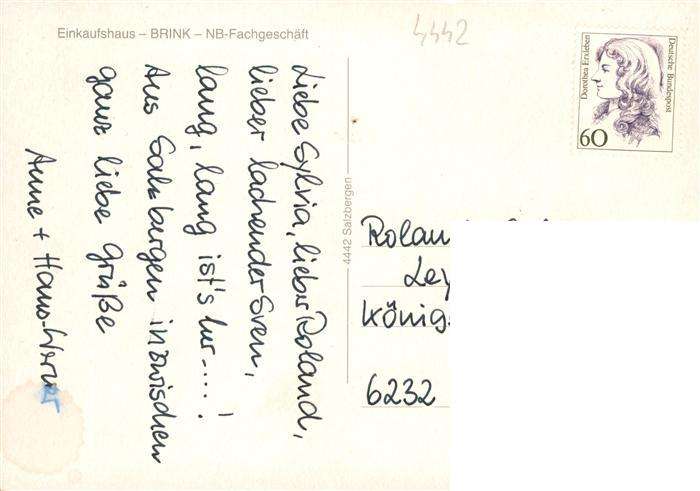 Einkaufshaus – BRINK – NB-Fachgeschäft
4442
Dorothea Erxleben
Deutsche Bundespost
60
Liebe Sylvia, lieber Roland,
lieber lachender Sven,
lang, lang ist's her....!
Aus Salzbergen inzwischen
ganz liebe Grüße
Anne + Hans-Werner
4442 Salzbergen
Rolan
Ley
König
6232